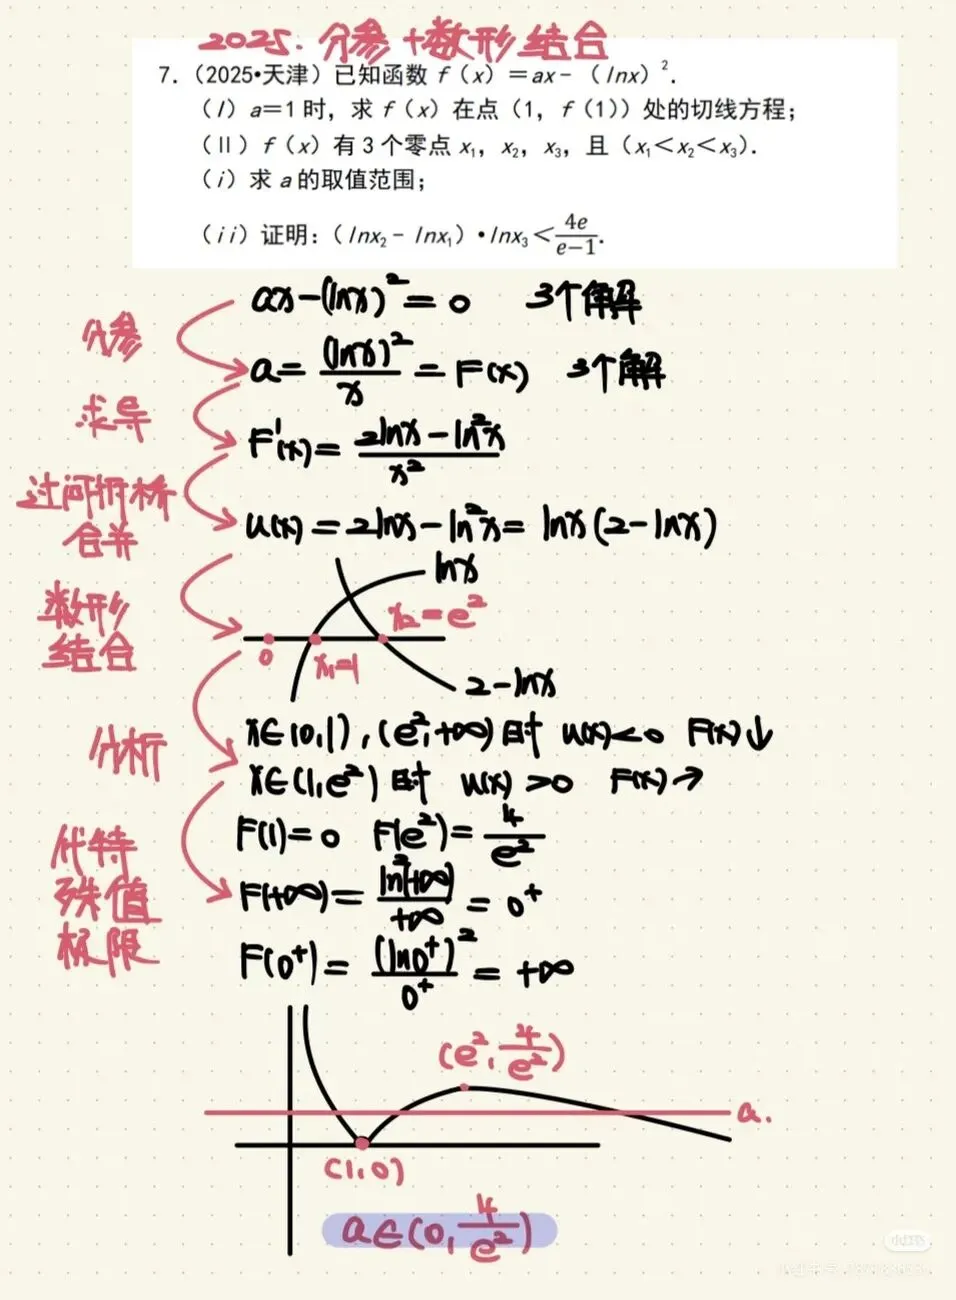 2025. 分参+数形结合
7.（2025•天津）已知函数 f（x）=ax-（lnx）².
（I）a=1时，求 f（x）在点（1，f（1））处的切线方程；
（II）f（x）有3个零点 x₁，x₂，x₃，且（x₁<x₂<x₃）.
（i）求 a 的取值范围；
（ii）证明：（lnx₂-lnx₁）•lnx₃<4e/(e-1).
ax-(lnx)²=0 3个解
分参
a=(lnx)²/x=F(x) 3个解
求导
F'(x)=(2lnx-ln²x)/x²
过河拆桥
合并
u(x)=2lnx-ln²x=lnx(2-lnx)
数形
结合
lnx
x₂=e²
0
x₁=1
2-lnx
分析
x∈(0,1),(e²,+∞)时 u(x)<0 F(x)↓
x∈(1,e²)时 u(x)>0 F(x)↗
代特
殊值
极限
F(1)=0 F(e²)=4/e²
F(+∞)=ln²(+∞)/+∞=0⁺
F(0⁺)=(ln0⁺)²/0⁺=+∞
(e²,4/e²)
a.
(1,0)
a∈(0,4/e²)
小红书